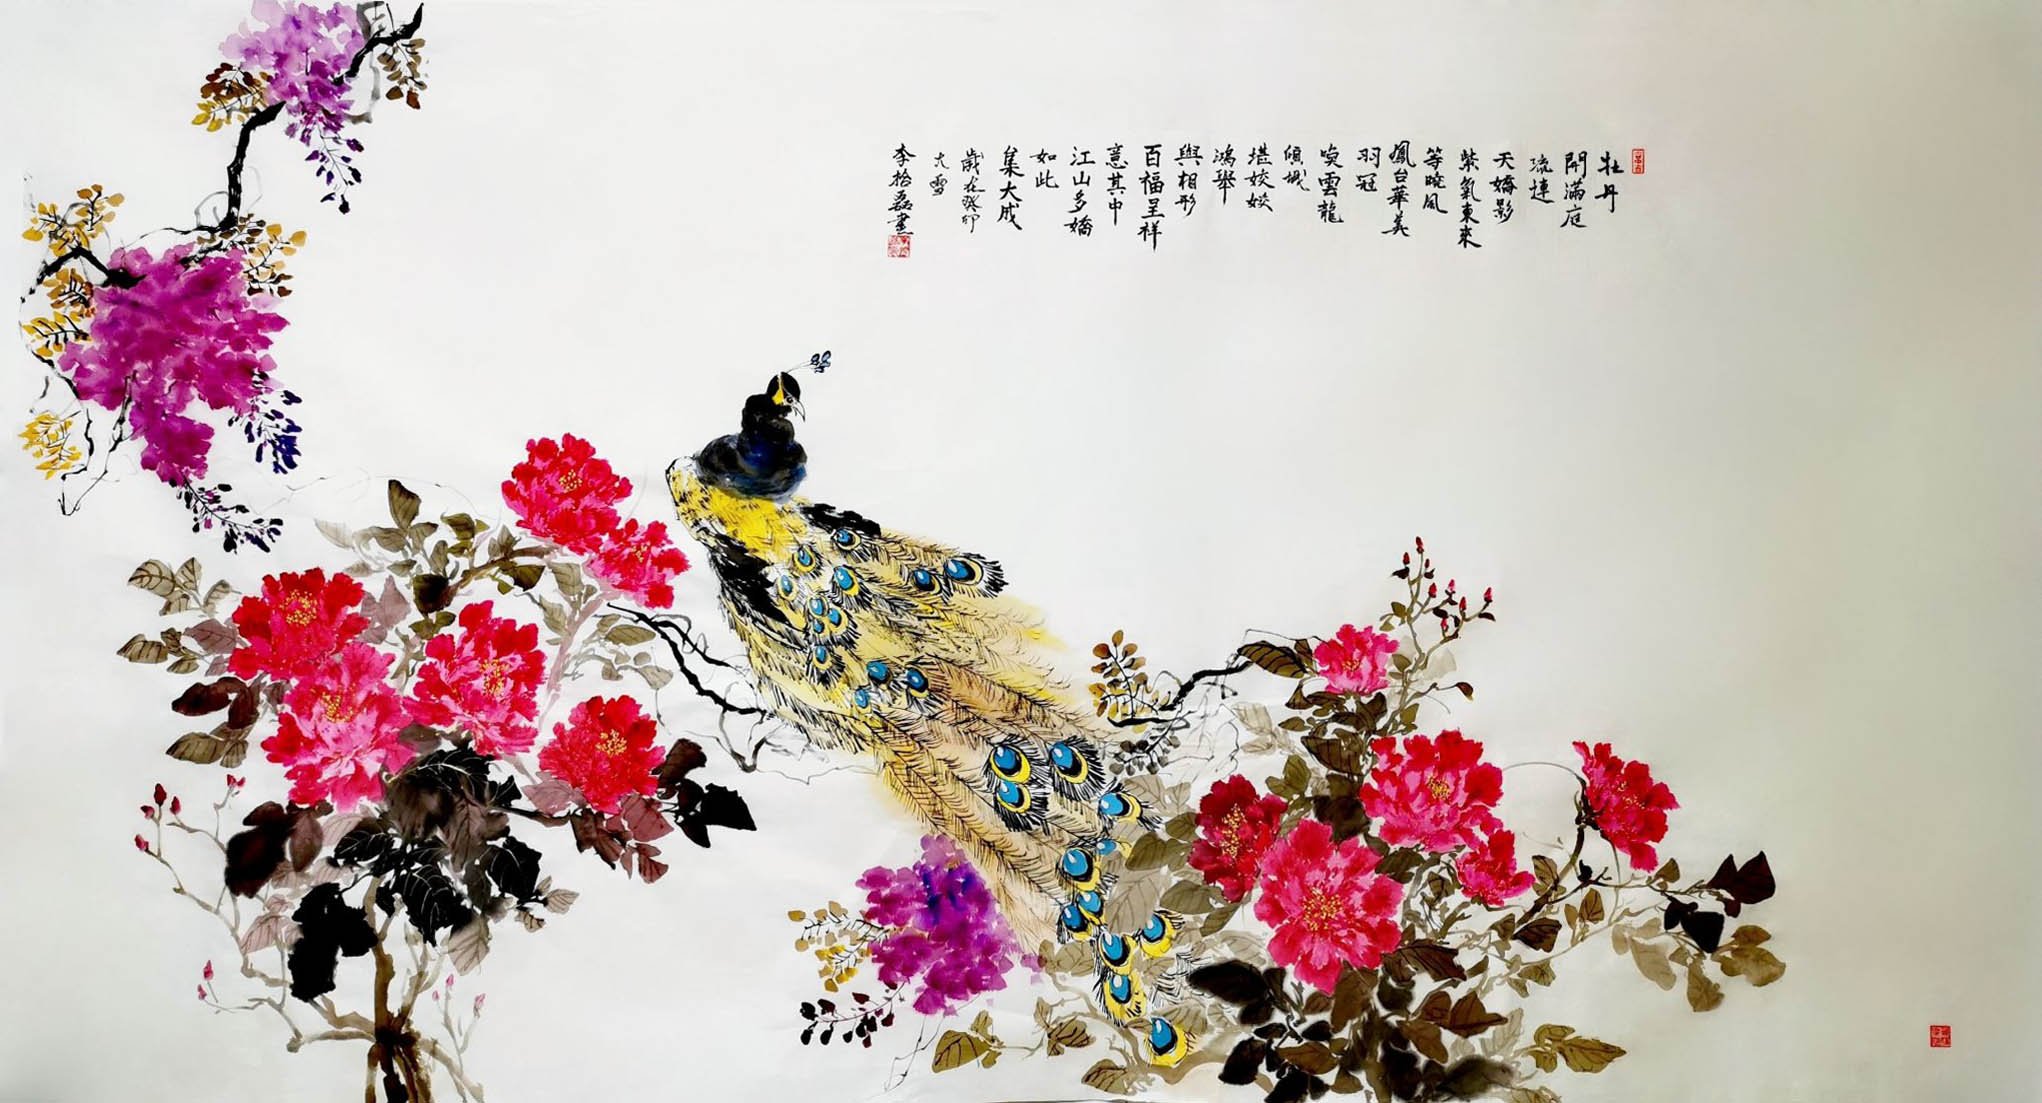 牡丹
開滿庭
流連
天嬌影
紫氣東來
等曉風
鳳台華美
羽冠
喚雲龍
傾城
堪姣姣
鴻舉
與相形
百福呈祥
意其中
江山多嬌
如此
集大成
歲在癸卯
大雪
李拾磊畫